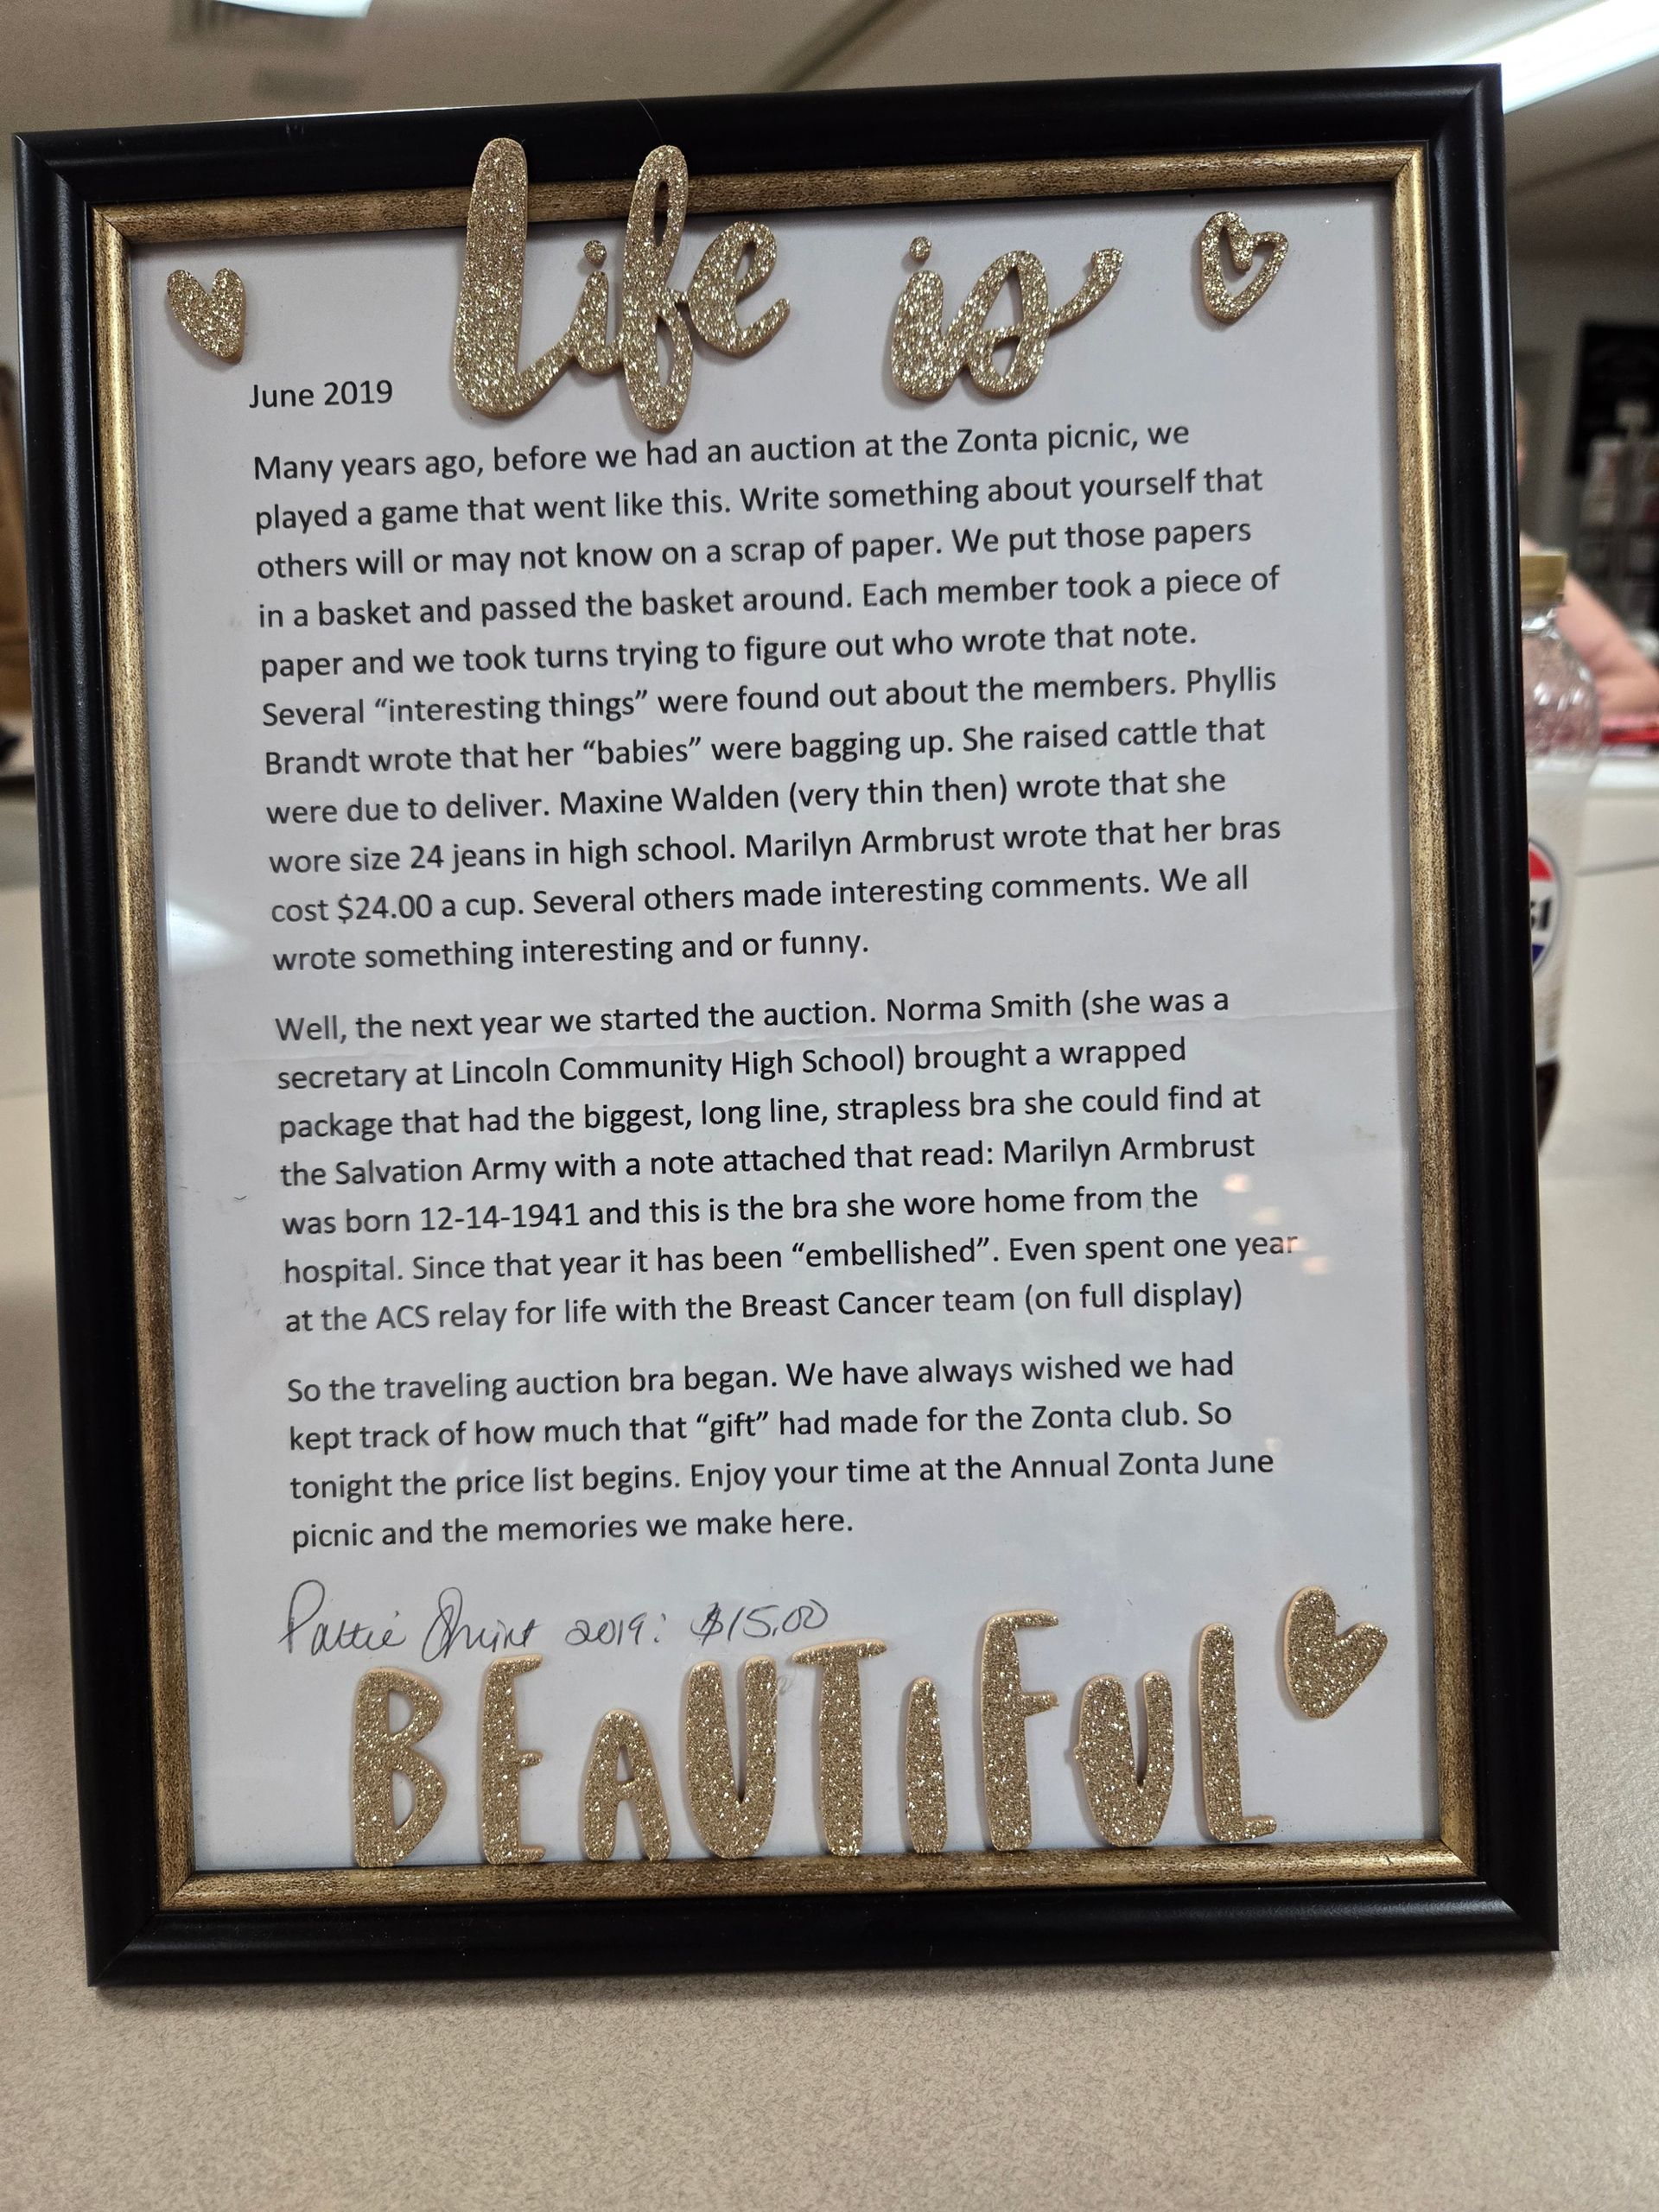 Life is
June 2019
Many years ago, before we had an auction at the Zonta picnic, we
played a game that went like this. Write something about yourself that
others will or may not know on a scrap of paper. We put those papers
in a basket and passed the basket around. Each member took a piece of
paper and we took turns trying to figure out who wrote that note.
Several “interesting things” were found out about the members. Phyllis
Brandt wrote that her “babies” were bagging up. She raised cattle that
were due to deliver. Maxine Walden (very thin then) wrote that she
wore size 24 jeans in high school. Marilyn Armbrust wrote that her bras
cost $24.00 a cup. Several others made interesting comments. We all
wrote something interesting and or funny.
Well, the next year we started the auction. Norma Smith (she was a
secretary at Lincoln Community High School) brought a wrapped
package that had the biggest, long line, strapless bra she could find at
the Salvation Army with a note attached that read: Marilyn Armbrust
was born 12-14-1941 and this is the bra she wore home from the
hospital. Since that year it has been “embellished”. Even spent one year
at the ACS relay for life with the Breast Cancer team (on full display)
So the traveling auction bra began. We have always wished we had
kept track of how much that “gift” had made for the Zonta club. So
tonight the price list begins. Enjoy your time at the Annual Zonta June
picnic and the memories we make here.
Pattie 2019: $15.00
BEAUTIFUL